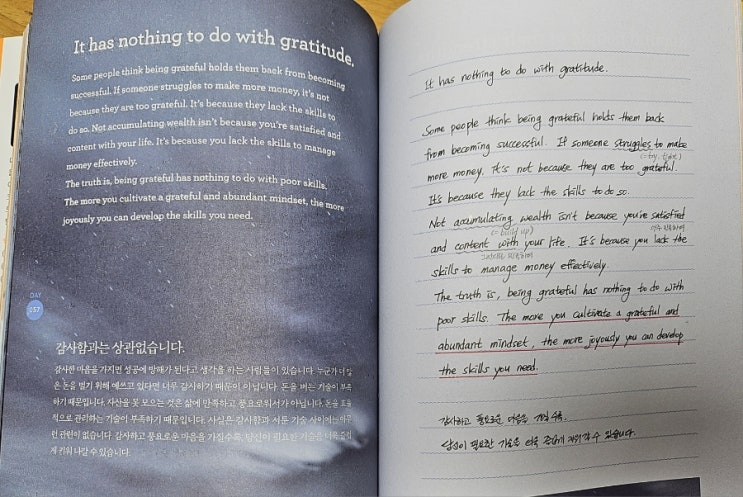 It has nothing to do with gratitude.
Some people think being grateful holds them back from becoming
successful. If someone struggles to make more money, it's not
because they are too grateful. It's because they lack the skills to
do so. Not accumulating wealth isn't because you're satisfied and
content with your life. It's because you lack the skills to manage
money effectively.
The truth is, being grateful has nothing to do with poor skills.
The more you cultivate a grateful and abundant mindset, the more
joyously you can develop the skills you need.
DAY
057
감사함과는 상관없습니다.
감사한 마음을 가지면 성공에 방해가 된다고 생각을 하는 사람들이 있습니다. 누군가 더 많
은 돈을 벌기 위해 애쓰고 있다면 너무 감사하기 때문이 아닙니다. 돈을 버는 기술이 부족
하기 때문입니다. 자산을 못 모으는 것은 삶에 만족하고 풍요로워서가 아닙니다. 돈을 효율
적으로 관리하는 기술이 부족하기 때문입니다. 사실은 감사함과 서툰 기술 사이에는 아무
런 관련이 없습니다. 감사하고 풍요로운 마음을 가질수록, 당신이 필요한 기술을 더욱 즐겁
게 키워 나갈 수 있습니다.
It has nothing to do with gratitude.
Some people think being grateful holds them back
from becoming successful. If someone struggles to make
(=try, fight)
more money. It's not because they are too grateful.
It's because they lack the skills to do so.
Not accumulating wealth isn't because you're satisfied
(=build up)
and content with your life. It's because you lack the
skills to manage money effectively.
The truth is, being grateful has nothing to do with
poor skills. The more you cultivate a grateful and
abundant mindset, the more joyously you can develop
the skills you need.
감사하고 풍요로운 마음을 가질수록,
당신이 필요한 기술을 더욱 즐겁게 키워 나갈 수 있습니다.